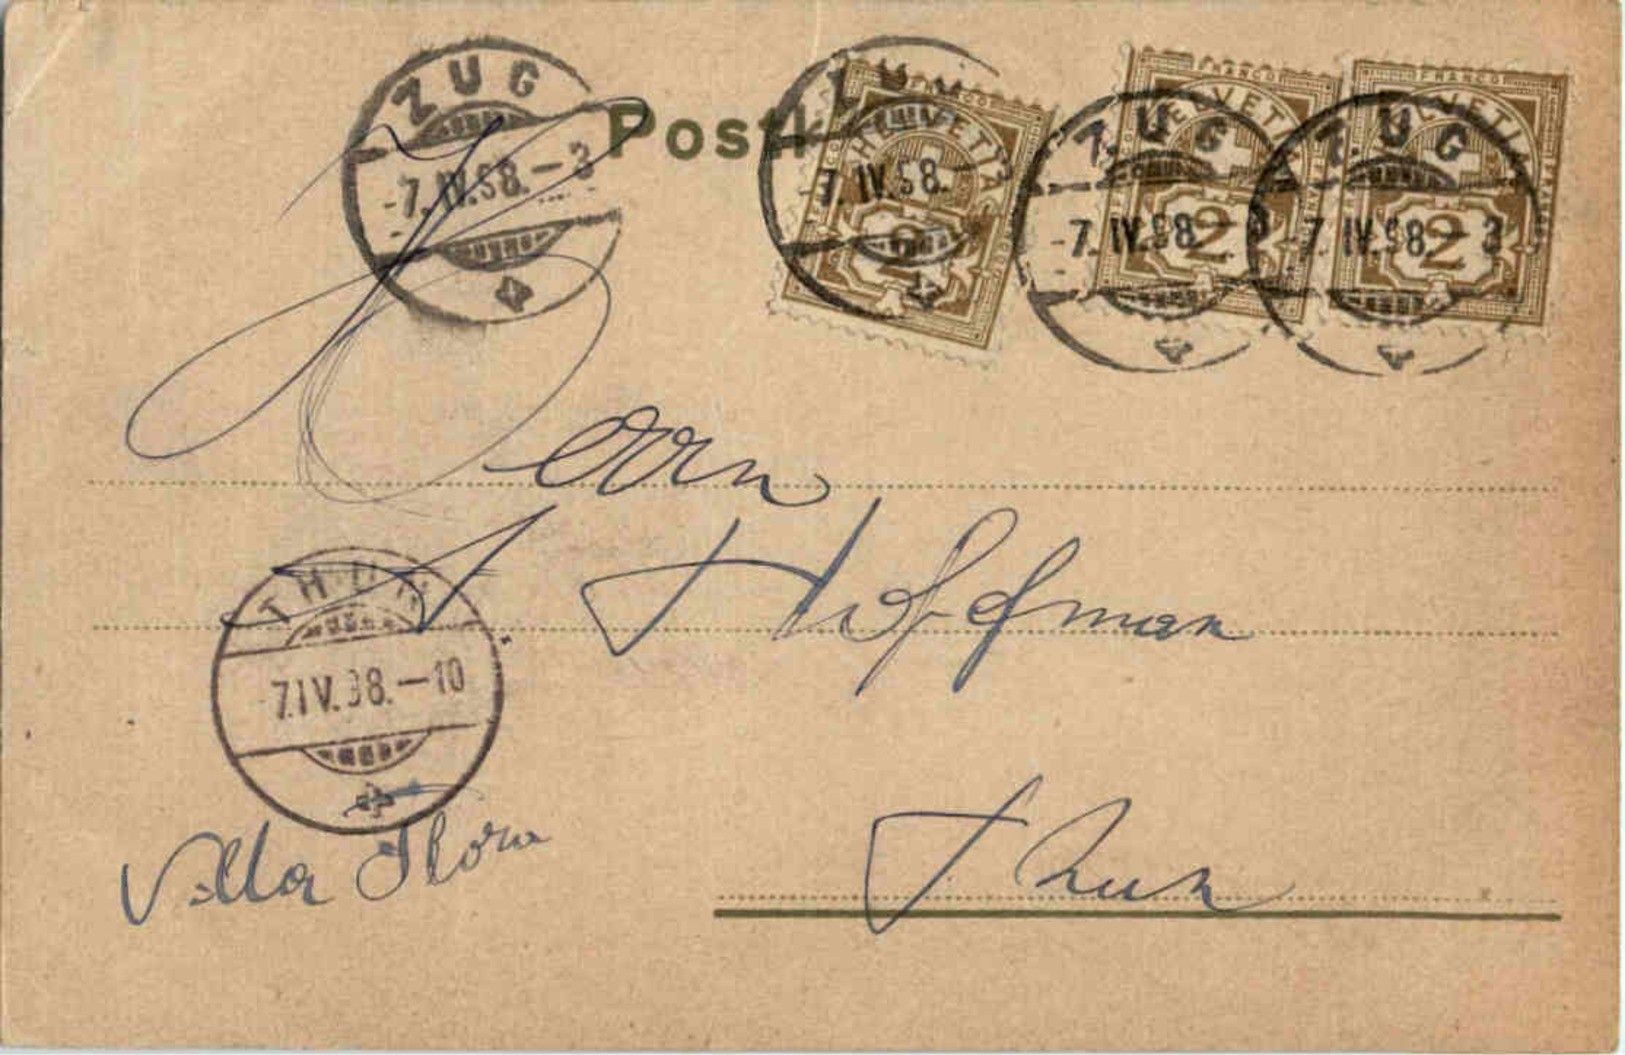 ZUG
-7.IV.98.-3
Post
ZUG
7.IV.98.
FRANCO
HELVETIA
2
ZUG
-7.IV.98
FRANCO
HELVETIA
2
ZUG
7.IV.98-3
FRANCO
HELVETIA
2
Herrn
Hoffman
THUN
7.IV.98.-10
Villa Flora
Thun